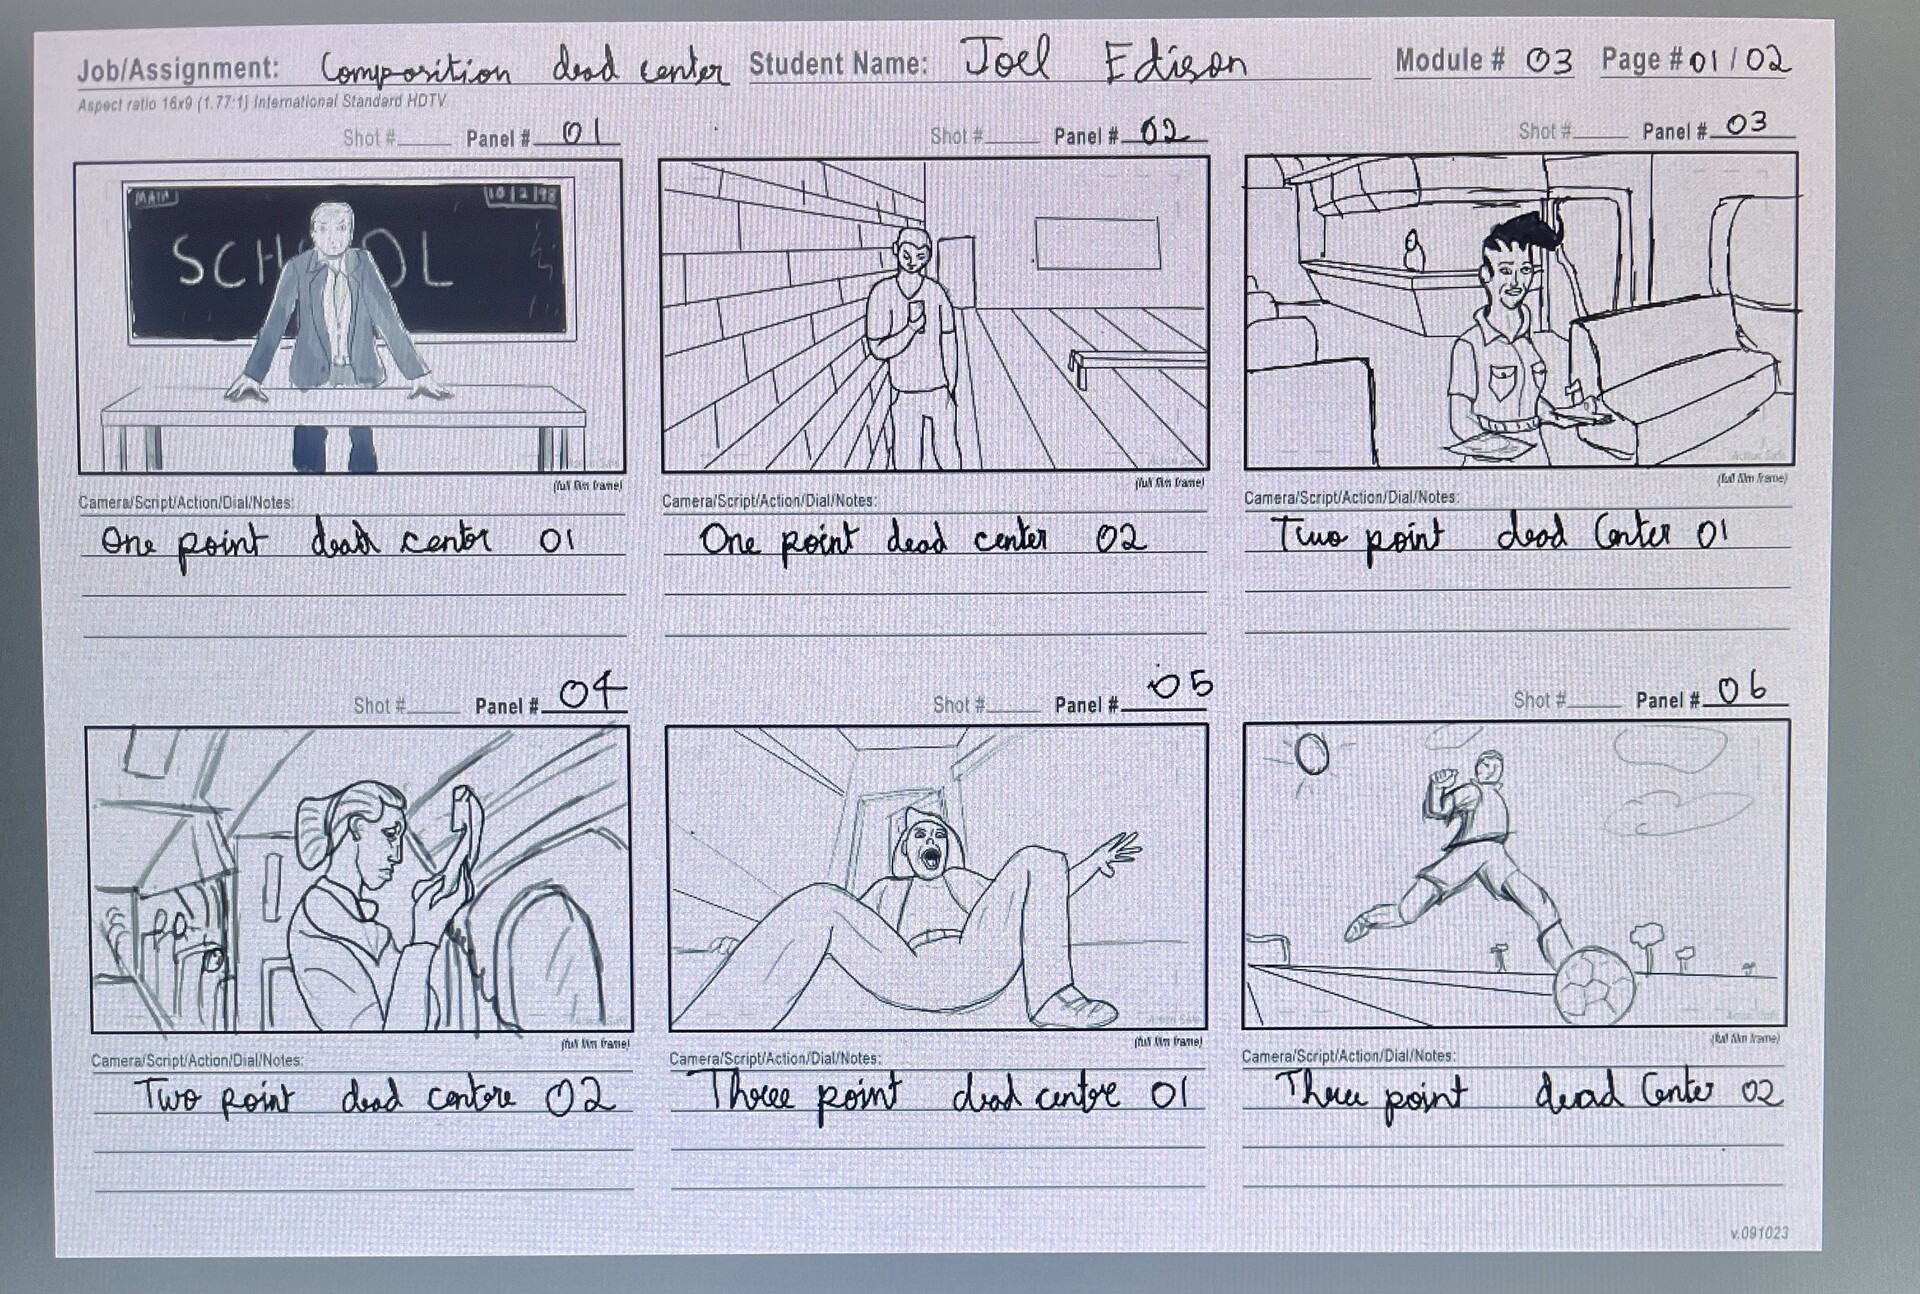 Job/Assignment: Composition dead center Student Name: Joel Edison Module # 03 Page # 01/02
Aspect ratio 16x9 (1.77:1) International Standard HDTV
Shot # Panel # 01 Shot # Panel # 02 Shot # Panel # 03
MAIN 10/2/98
SCH OL
Action Safe
(full film frame) (full film frame) (full film frame)
Camera/Script/Action/Dial/Notes: Camera/Script/Action/Dial/Notes: Camera/Script/Action/Dial/Notes:
One point dead center 01 One point dead center 02 Two point dead Center 01
Shot # Panel # 04 Shot # Panel # 05 Shot # Panel # 06
Action Safe Action Safe
(full film frame) (full film frame) (full film frame)
Camera/Script/Action/Dial/Notes: Camera/Script/Action/Dial/Notes: Camera/Script/Action/Dial/Notes:
Two point dead centre 02 Three point dead centre 01 Three point dead Center 02
v.091023